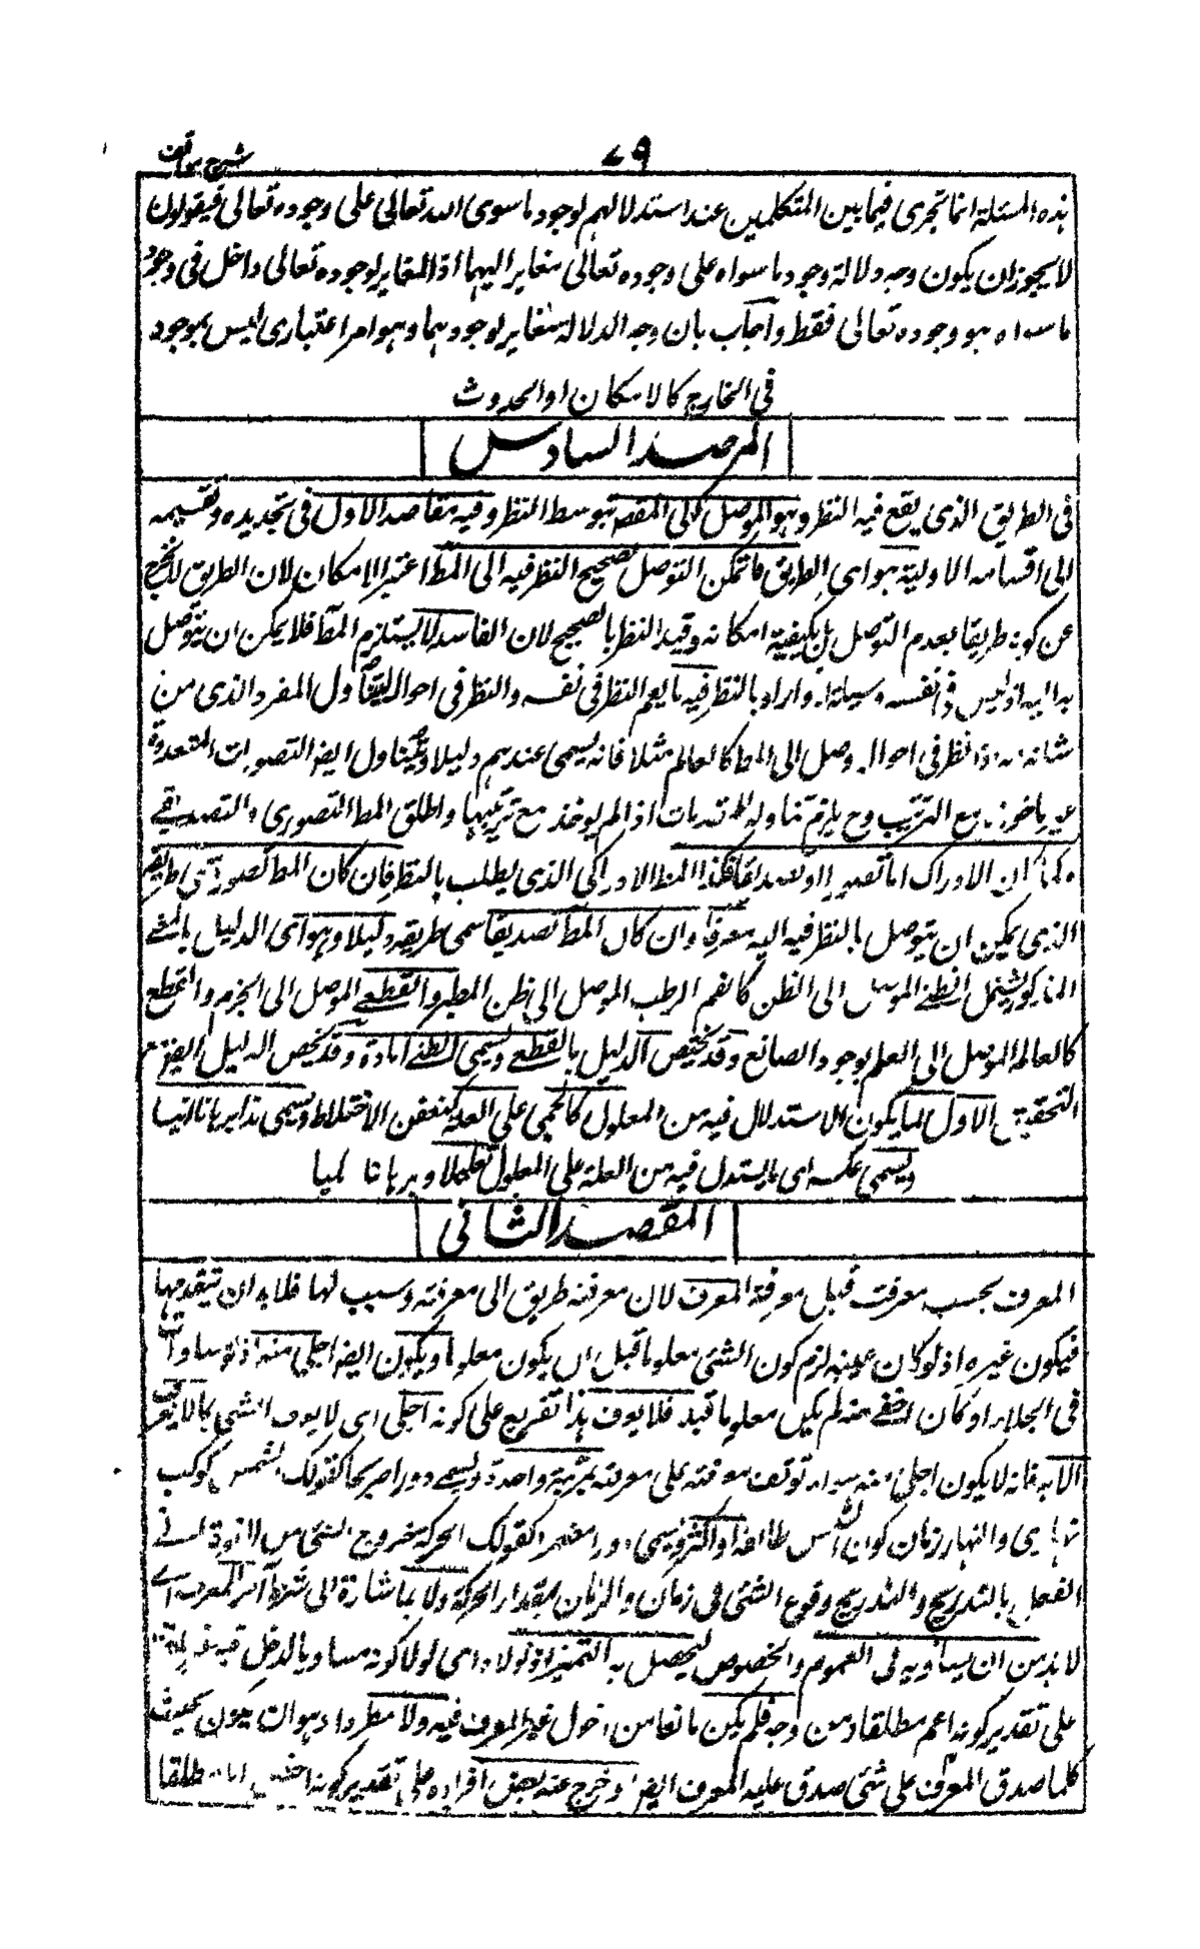 ٧٩
شرح مواقف
هذه المسئلة انما تجرى فيما بين المتكلمين عند استدلالهم لوجود ما سوى الله تعالى على وجوده تعالى فيقولون
لا يجوز ان يكون وجه دلالة وجود ما سواه على وجوده تعالى مغاير اليهما اذ المغاير لوجوده تعالى داخل فى وجود
ما سواه هو وجوده تعالى فقط واجاب بان وجه الدلالة مغاير لوجودهما وهو امر اعتبارى ليس بموجود
فى الخارج كالامكان او الحدوث
المرصد السادس
فى الطريق الذى يقع فيه النظر وهو الموصل الى المقصد بتوسط النظر وفيه مقاصد الاول فى تحديده وتقسيمه
الى اقسامه الاولية هو اى الطريق ما يمكن التوصل بصحيح النظر فيه الى المط اعتبر الامكان لان الطريق لا يخرج
عن كونه طريقا بعدم التوصل بل يكفيه امكانه وقيد النظر بالصحيح لان الفاسد لا يستلزم المط فلا يمكن ان يتوصل
به اليه اذ ليس فى نفسه وسيلة له واراد بالنظر فيه ما يعم النظر فى نفسه والنظر فى احواله ليتناول المفرد الذى من
شانه انه اذا نظر فى احواله وصل الى المط كالعالم مثلا فانه يسمى عندهم دليلا ويتناول ايضا التصورات المتعددة
غير ماخوذة مع الترتيب وح يلزم تناوله للمقدمات اذا لم يوخذ مع ترتيبها واطلق المط التصورى والتصديقے
ولما ان الادراك اما تصور او تصديق فكذا المط الادراكى الذى يطلب بالنظر فان كان المط تصورا سمى طريقه
الذى يمكن ان يتوصل بالنظر فيه اليه معرفا وان كان المط تصديقا سمى طريقه دليلا وهو اى الدليل بالمعنے
المذكور يشمل الظنے الموصل الى الظن كالغيم الرطب الموصل الى ظن المطر والقطعے الموصل الى الجزم والقطع
كالعالم الموصل الى العلم بوجود الصانع وقد يختص الدليل بالقطعے ويسمى الظنے امارة وقد يخص الدليل ايضا مع
التحقيق الاول بما يكون الاستدلال فيه من المعلول كالحمى على العلة كتعفن الاخلاط ويسمى هذا برهانا انيا
ويسمى عكسه اى ما يستدل فيه من العلة على المعلول تعليلا وبرهانا لميا
المقصد الثانى
المعرف بحسب معرفته قبل معرفة المعرف لان معرفته طريق الى معرفته وسبب لها فلا بد ان يتقدمها
فيكون غيره اذ لو كان عينه لزم كون الشئ معلوما قبل ان يكون معلوما ويكون ايضا اجلى منه اذ لو ساواه
فى الجلاء او كان اخفے منه لم يكن معلوما قبله فلا يعرف هذا تفريع على كونه اجلى اى لا يعرف الشئ بما لا يعرف
الا به فانه لا يكون اجلى منه سواء توقف معرفته على معرفته بمرتبة واحدة ويسمے دورا صريحا كقولك الشمس كوكب
نهارى والنهار زمان كون الشمس طالعة او اكثر ويسمى دورا مضمرا كقولك الحركة خروج الشئ من القوة الے
الفعل بالتدريج والتدريج وقوع الشئ فى زمان والزمان مقدار الحركة ولا بد اشارة الى شرط آخر للمعرف اے
لا بد من ان يساويه فى العموم والخصوص ليحصل به التميز اذ لولاه اى لولا كونه مساويا لدخل فيه غيره
على تقدير كونه اعم مطلقا او من وجه فلم يكن مانعا من دخول غير المعرف فيه ولا مطردا وهو ان يكون بحيث
كلما صدق المعرف على شئ صدق عليه المعرف ايضا او خرج عنه بعض افراده على تقدير كونه اخص اما مطلقا